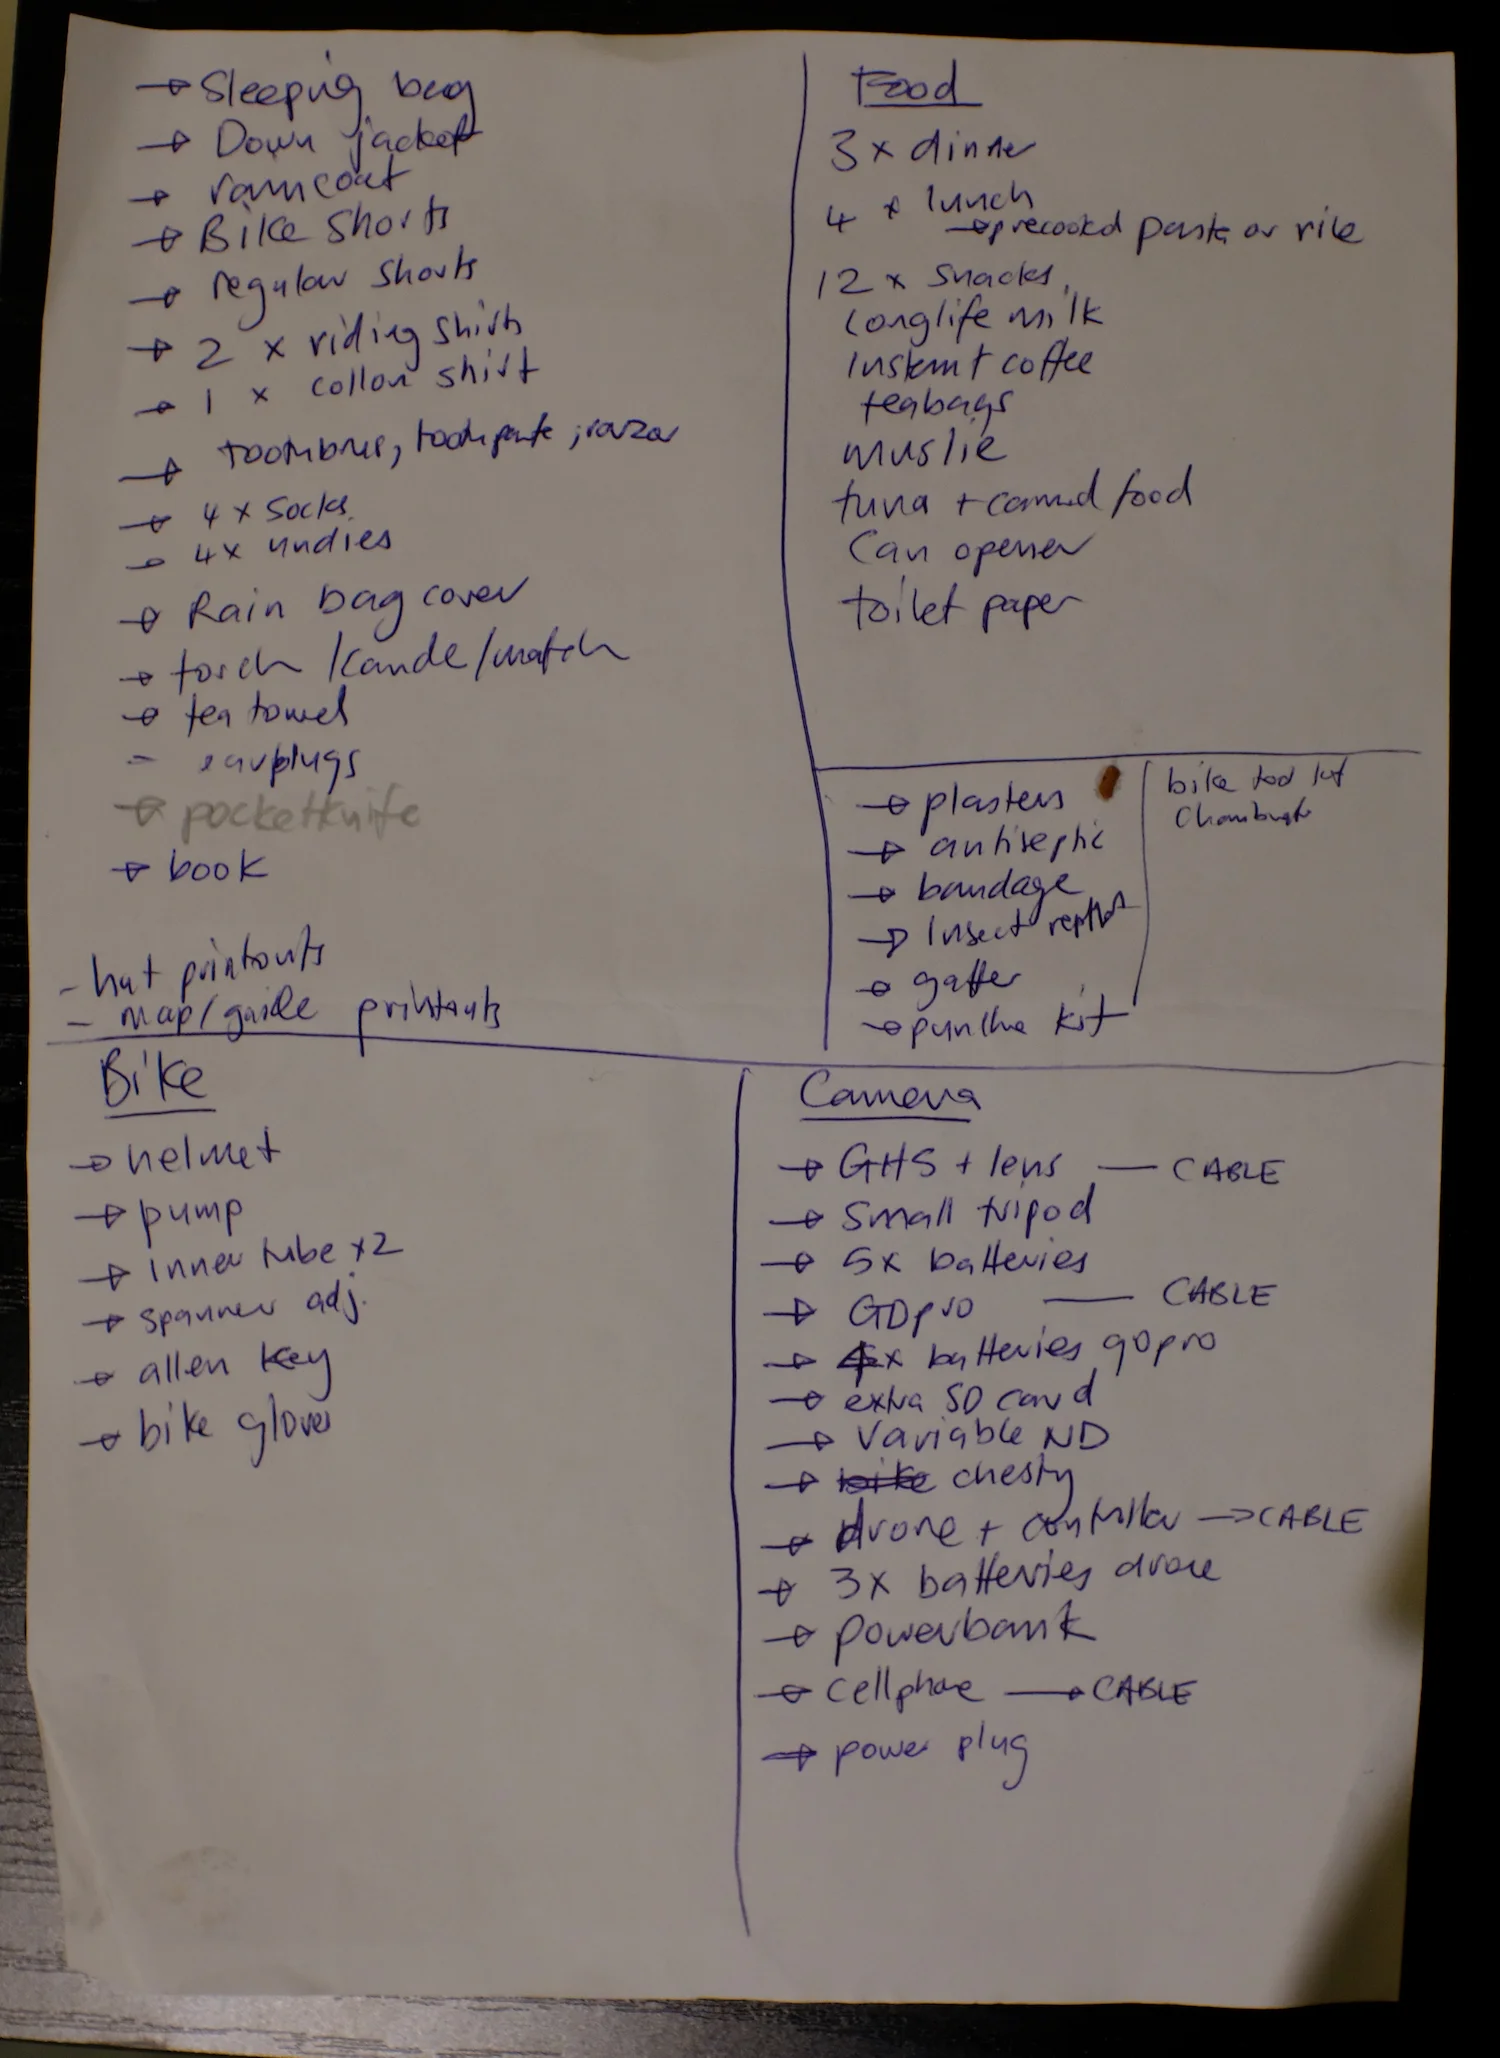 → Sleeping bag
→ Down jacket
→ raincoat
→ Bike shorts
→ regular shorts
→ 2 x riding shirts
→ 1 x shirt
→ toothbrus, toothpaste, razor
→ 4 x socks
→ 4x undies
→ Rain bag cover
→ torch /candle/match
→ tea towel
- earplugs
→ pocketknife
→ book
- hut printouts
- map/guide printouts
Food
3 x dinner
4 x lunch
→ precooked pasta or rice
12 x snacks
longlife milk
Instant coffee
teabags
muslie
tuna + canned food
Can opener
toilet paper
→ plasters
→ antiseptic
→ bandage
→ Insect
→ gaffer
→ kit
bike tool kit
Bike
→ helmet
→ pump
→ inner tube x2
→ spanner adj.
→ allen key
→ bike gloves
Camera
→ GH5 + lens — CABLE
→ small tripod
→ 5x batteries
→ GOpro — CABLE
→ 4x batteries gopro
→ extra SD card
→ Variable ND
→ bike chesty
→ drone + controller → CABLE
→ 3x batteries drone
→ powerbank
→ cellphone → CABLE
→ power plug